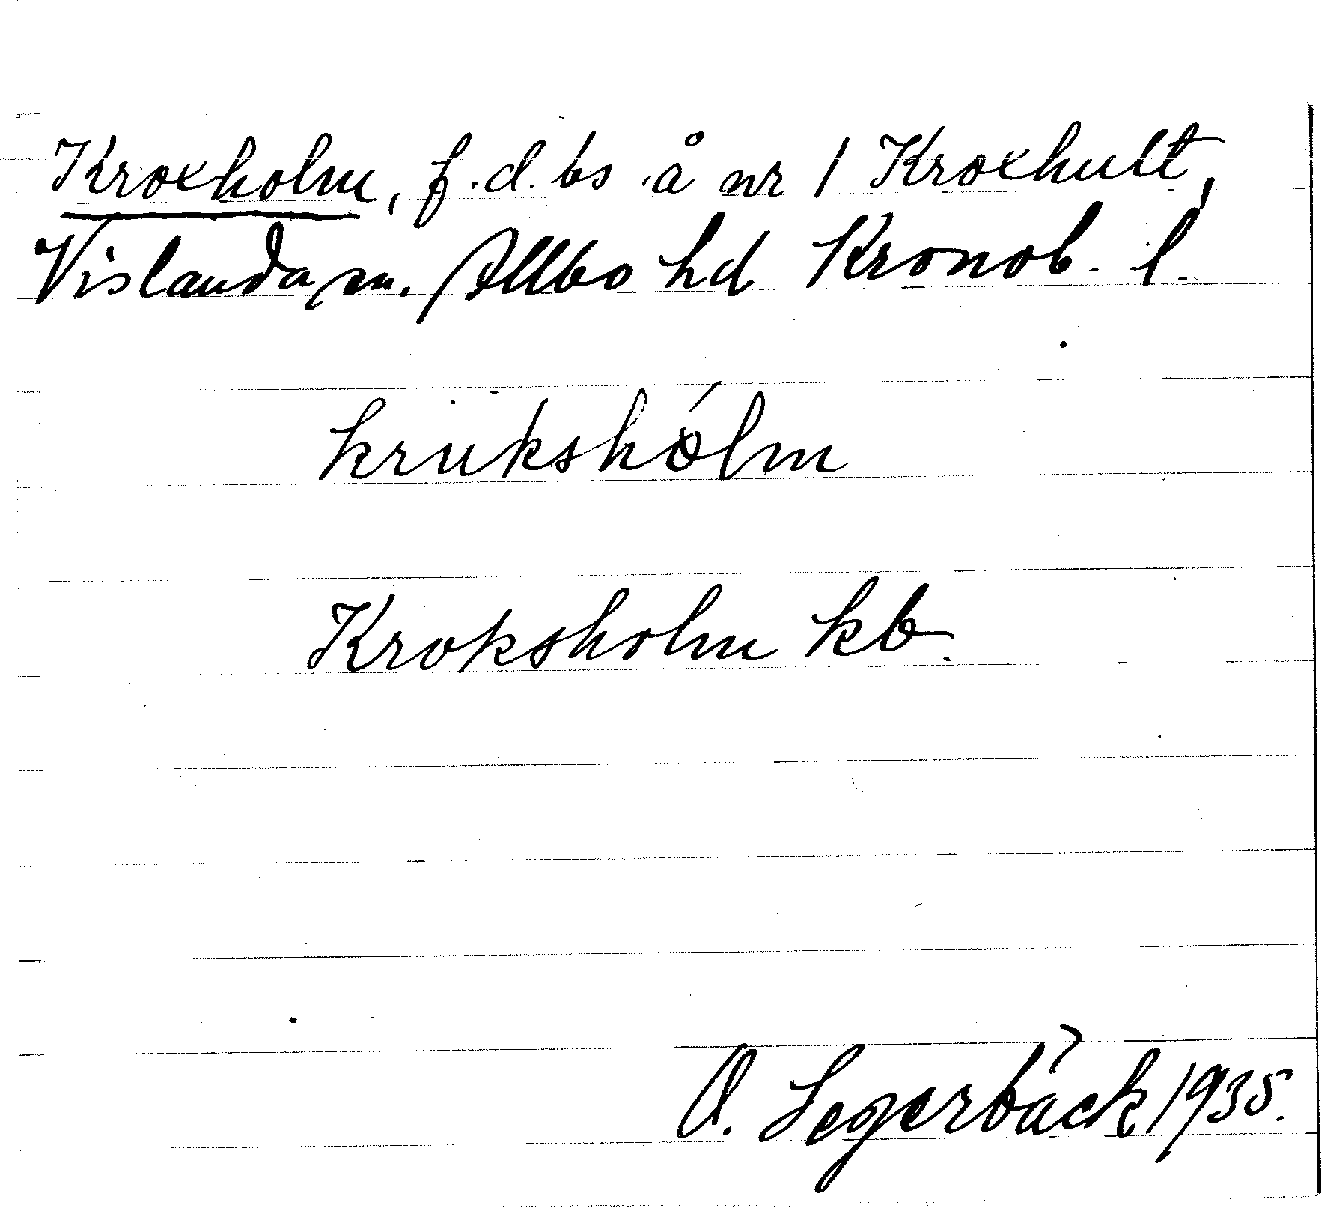 Kroxholm, f.d. bs å nr 1 Kroxhult,
Vislanda sn. Allbo hd Kronob. l.
krukshólm
Kroksholm kb.
O. Segerbäck 1935.